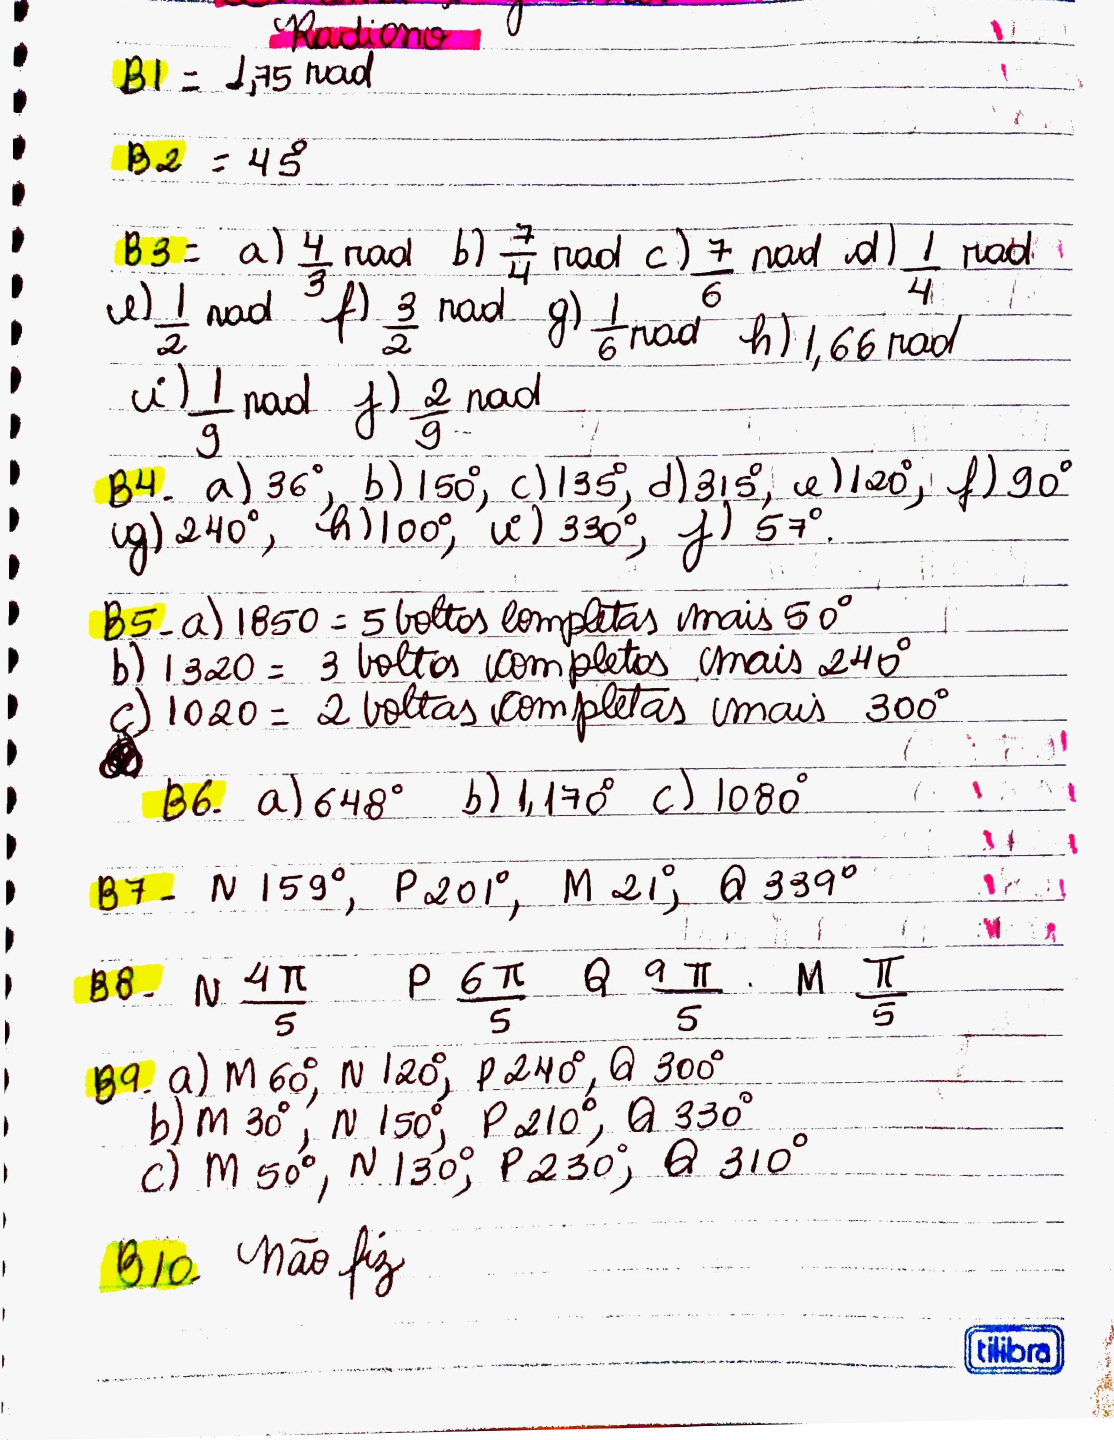 Radiano
B1 = 1,75 rad
B2 = 45°
B3 = a) 4/3 rad b) 7/4 rad c) 7/6 rad d) 1/4 rad
e) 1/2 rad f) 3/2 rad g) 1/6 rad h) 1,66 rad
i) 1/9 rad j) 2/9 rad
B4. a) 36°, b) 150°, c) 135°, d) 315°, e) 120°, f) 90°
g) 240°, h) 100°, i) 330°, j) 57°.
B5 - a) 1850 = 5 voltas completas mais 50°
b) 1320 = 3 voltas completas mais 240°
c) 1020 = 2 voltas completas mais 300°
B6. a) 648° b) 1,170° c) 1080°
B7 - N 159°, P 201°, M 21°, Q 339°
B8 - N 4π/5 P 6π/5 Q 9π/5 . M π/5
B9. a) M 60°, N 120°, P 240°, Q 300°
b) M 30°, N 150°, P 210°, Q 330°
c) M 50°, N 130°, P 230°, Q 310°
B10. não fiz
tilibra